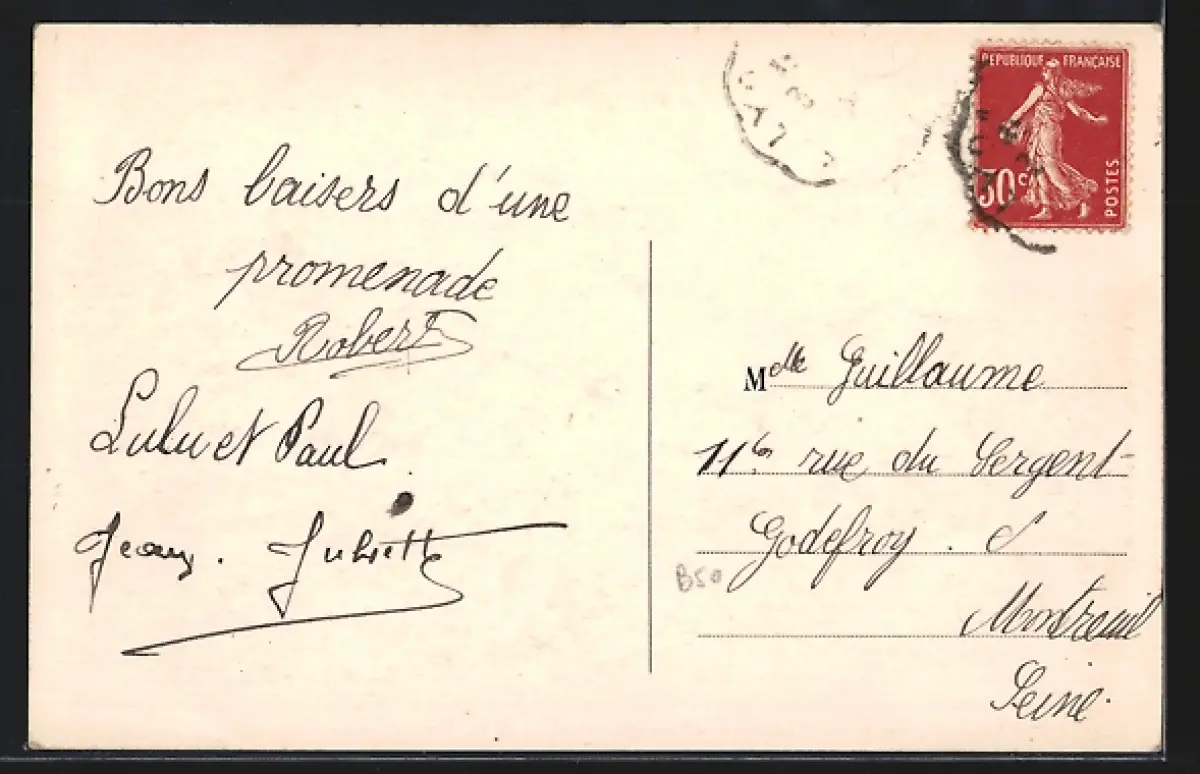 RÉPUBLIQUE FRANÇAISE
30c
POSTES
Bons baisers d'une
promenade
Robert
Lulu et Paul.
Jean. Juliette
Mdlle Guillaume
11bis rue du Sergent-
Godefroy. à
Montreuil
Seine.
B50